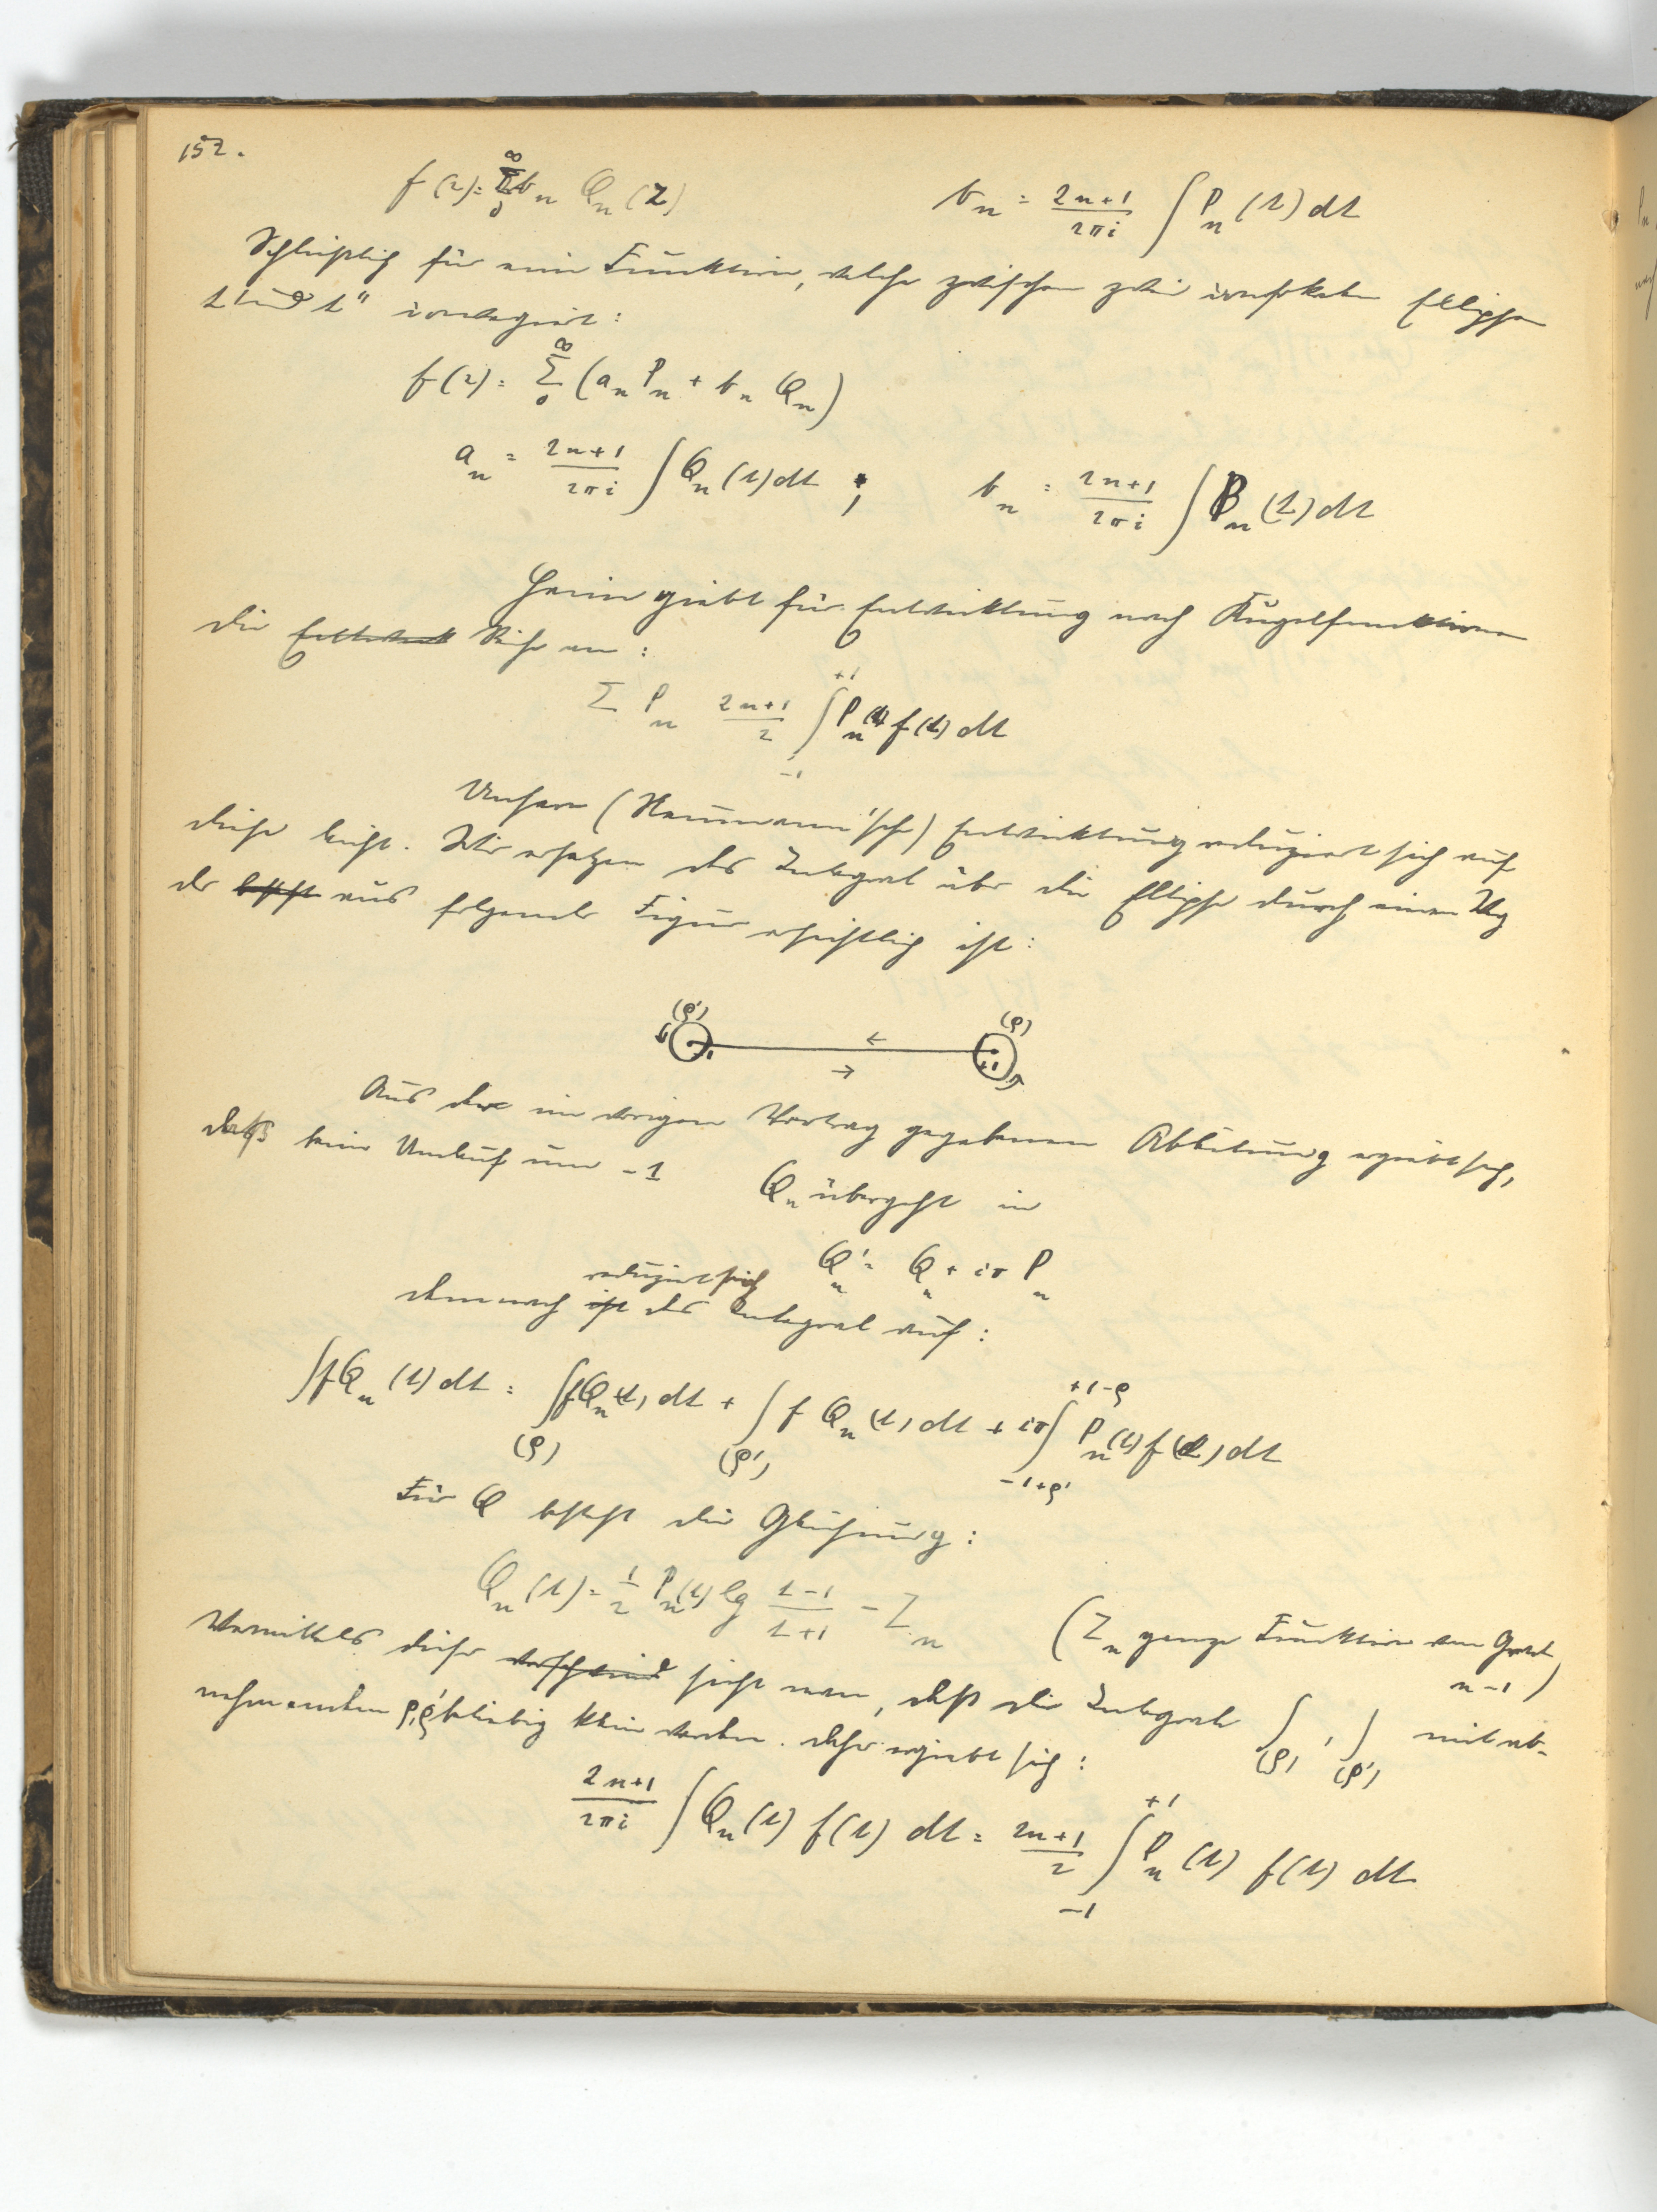 152.
f(z) = ∞ Σ 0 b_n Q_n (z)    b_n = (2n+1)/(2πi) ∫ P_n (t) dt
Schließlich für eine Funktion, welche zwischen zwei konfokalen Ellipsen
t' und t'' konvergirt:
f(z) = ∞ Σ 0 (a_n P_n + b_n Q_n)
a_n = (2n+1)/(2πi) ∫ Q_n (t) dt ;    b_n = (2n+1)/(2πi) ∫ P_n (t) dt
Heine giebt für Entwicklung nach Kugelfunktionen
die Reihe an:
Σ P_n (2n+1)/2 ∫_{-1}^{+1} P_n (t) f(t) dt
Unsere (Neumann'sche) Entwicklung reduziert sich auf
diese leicht. Wir ersetzen das Integral über die Ellipse durch einen Weg
der aus folgender Figur ersichtlich ist:
(ρ')    (ρ)
← 
→
-1    +1
Aus der im vorigen Vortrag gegebenen Abbildung ergiebt sich,
daß beim Umlauf um -1    Q_n übergeht in
Q'_n = Q_n + iπ P_n
demnach reduziert sich das Integral auf:
∫ f Q_n (t) dt = ∫_{(ρ)} f Q_n (t) dt + ∫_{(ρ')} f Q_n (t) dt + iπ ∫_{-1+ρ'}^{+1-ρ} P_n (t) f(t) dt
Für Q besteht die Gleichung:
Q_n (t) = 1/2 P_n (t) lg (t-1)/(t+1) - Z_n    (Z_n ganze Funktion vom Grad
n-1)
Vermittels dieser sieht man, daß die Integrale ∫_{(ρ)}, ∫_{(ρ')} mit ab-
nehmenden ρ, ρ' beliebig klein werden. Daher ergiebt sich:
(2n+1)/(2πi) ∫ Q_n (t) f(t) dt = (2n+1)/2 ∫_{-1}^{+1} P_n (t) f(t) dt